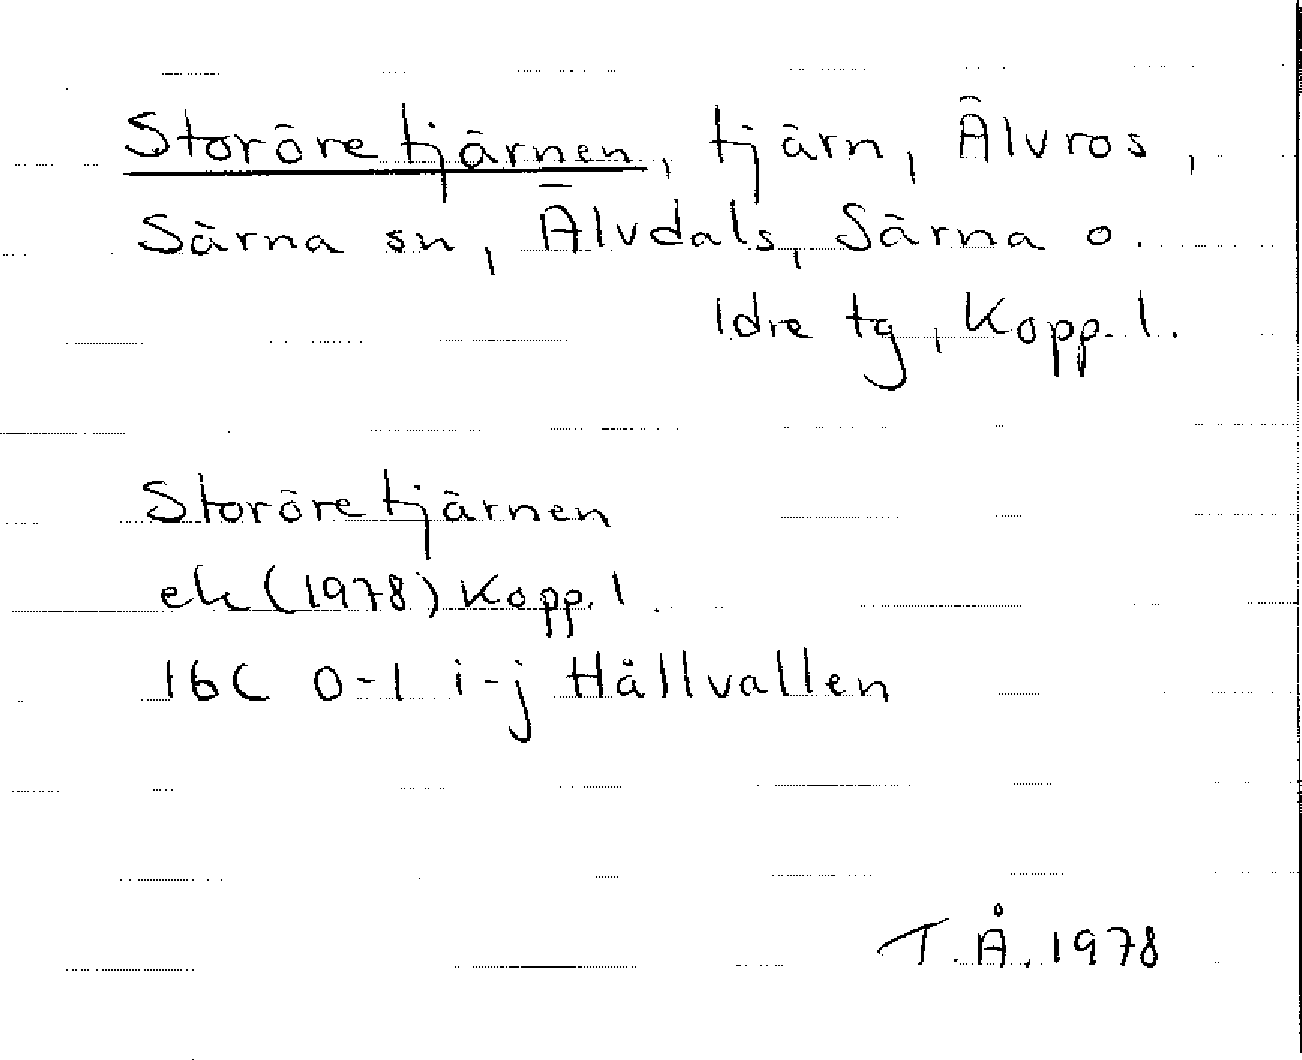 Storöretjärnen, tjärn, Älvros,
Särna sn, Älvdals, Särna o.
Idre tg, Kopp. l.
Storöretjärnen
ek (1978) Kopp. l
16C 0-1 i-j Hållvallen
T.Å. 1978